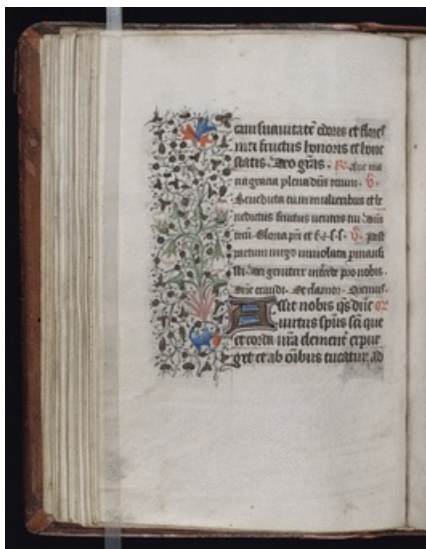 caui suauitatē odores et flores
mei fructus honoris et hone
statis. Deo grās. R. Aue ma
ria gracia plena dn̄s tecum. V.
Benedicta tu in mulieribus et be
nedictus fructus uentris tui dn̄s
tecū. Gloria pri et f. s. s. V. post
partum uirgo inuiolata permansi
sti. dei genitrix intēde pro nobis.
Dn̄e exaudi. Et clamor. Oremus.
Assit nobis qs dn̄e or
uirtus spūs sc̄i que
et corda nr̄a clement̄ expur
get et ab oībus tueatur ad